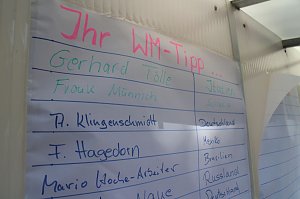 Ihr WM-Tipp ...
Gerhard Tölle Italien
Frank Münnich
A. Klingenschmidt Deutschland
F. Hagedorn Mexiko
Mario Woche-Arbeiter Brasilien
Russland
Deutschland